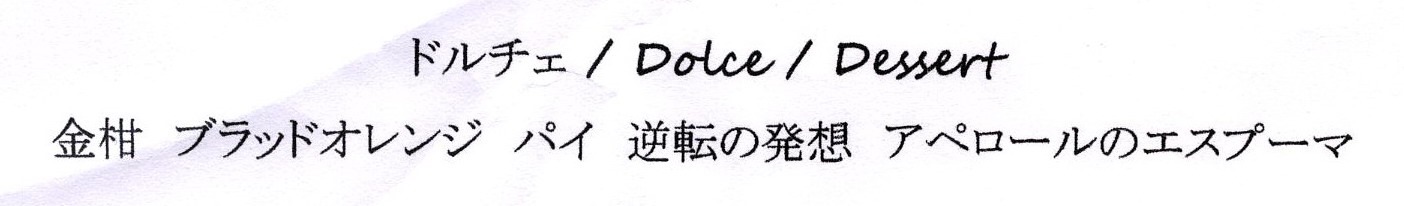 ドルチェ / Dolce / Dessert
金柑　ブラッドオレンジ　パイ　逆転の発想　アペロールのエスプーマ